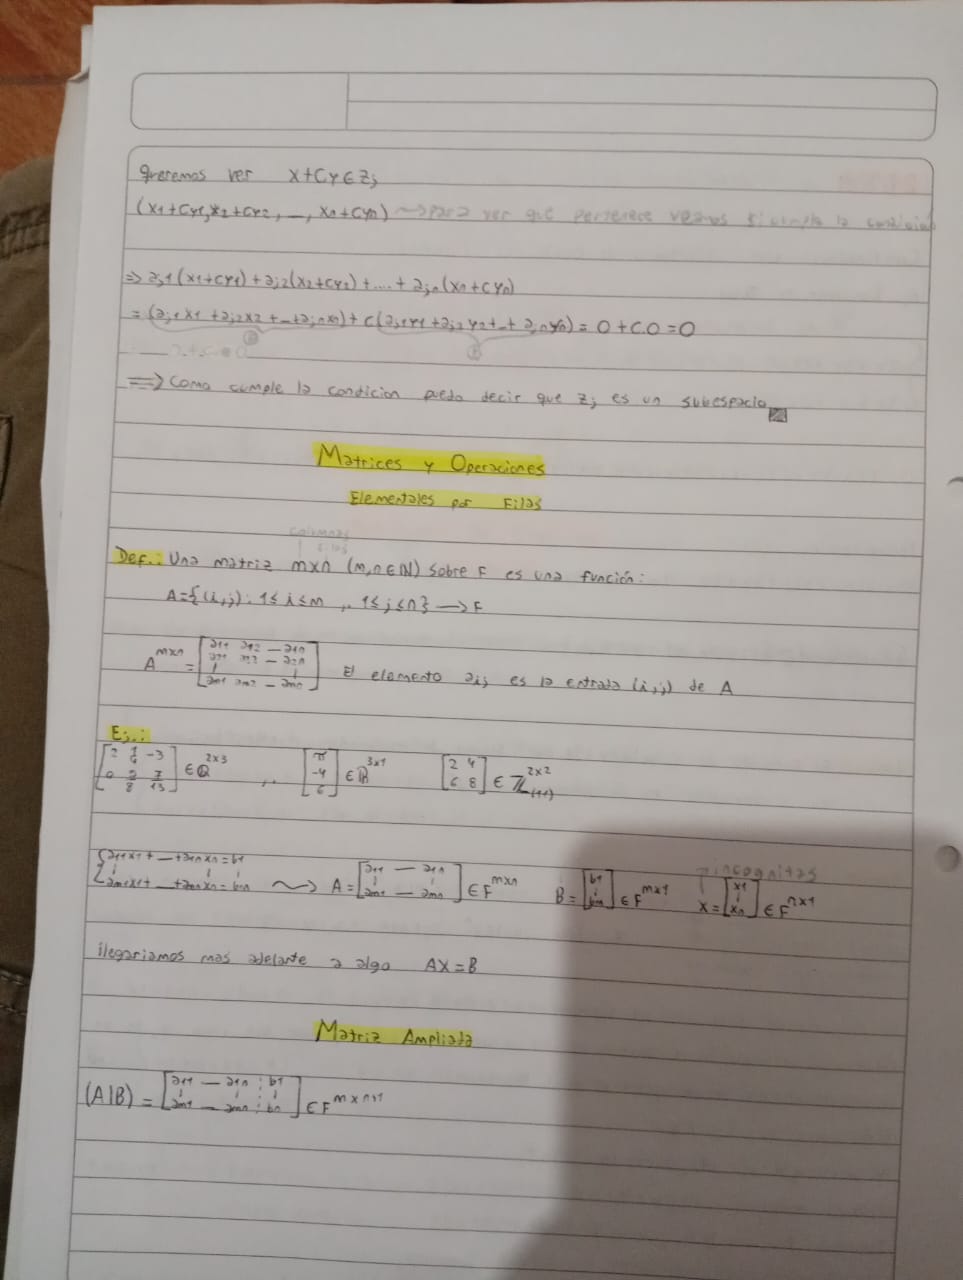 queremos ver X+CY∈Zj
(x1+cy1, x2+cy2, _, xn+cyn) ~> para ver que pertenece veamos si cumple la condición
=> aj1(x1+cy1)+aj2(x2+cy2)+....+ajn(xn+cyn)
= (aj1x1+aj2x2+_+ajnxn)+c(aj1y1+aj2y2+_+ajnyn) = 0+C.0=0
=> Como cumple la condicion puedo decir que Zj es un subespacio
Matrices y Operaciones
Elementales por Filas
columnas
filas
Def.: Una matriz mxn (m,n∈IN) sobre F es una función:
A={(i,j): 1≤i≤m ,, 1≤j≤n} → F
A^mxn = [a11 a12 — a1n
a21 a22 — a2n
am1 am2 — amn] El elemento aij es la entrada (i,j) de A
Ej.:
[2 -3
0 7/13] ∈ Q^2x3 ,, [π -4 6] ∈ IR^3x1 [2 4
6 8] ∈ Z^2x2
{a11x1+_+a1nxn=b1
am1x1+_+amnxn=bm ~> A=[a11 — a1n
am1 — amn] ∈F^mxn B=[b1
bm] ∈F^mx1 incognitas
X=[x1
xn] ∈F^nx1
llegariamos mas adelante a algo AX=B
Matriz Ampliada
(A|B) = [a11 — a1n : b1
am1 — amn : bn] ∈F^mxn+1